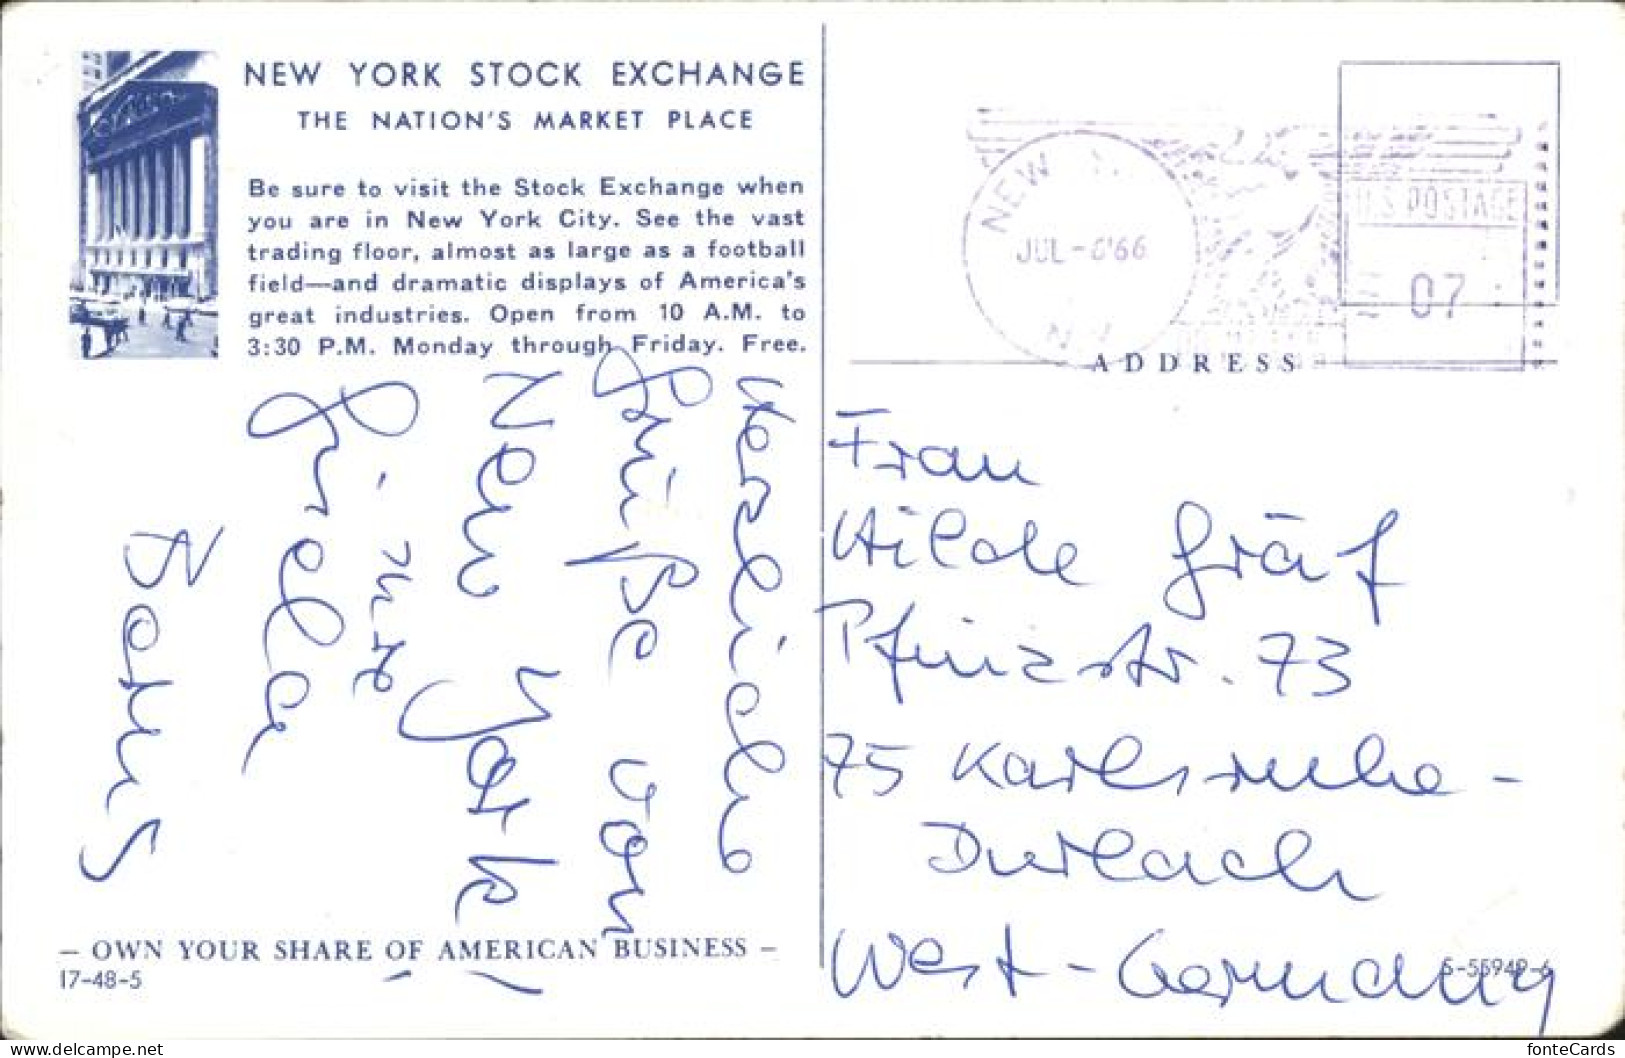 NEW YORK STOCK EXCHANGE
THE NATION'S MARKET PLACE
Be sure to visit the Stock Exchange when
you are in New York City. See the vast
trading floor, almost as large as a football
field—and dramatic displays of America's
great industries. Open from 10 A.M. to
3:30 P.M. Monday through Friday. Free.
Herzliche
Grüße von
New York!
Gisela
Bohus
— OWN YOUR SHARE OF AMERICAN BUSINESS —
17-48-5
NEW
N.Y.
JUL -6'66
U.S. POSTAGE
07
ADDRESS
Frau
Hilde Gräf
Pfinzstr. 73
75 Karlsruhe -
Durlach
West-Germany
S-55949-6
www.delcampe.net
fonteCards